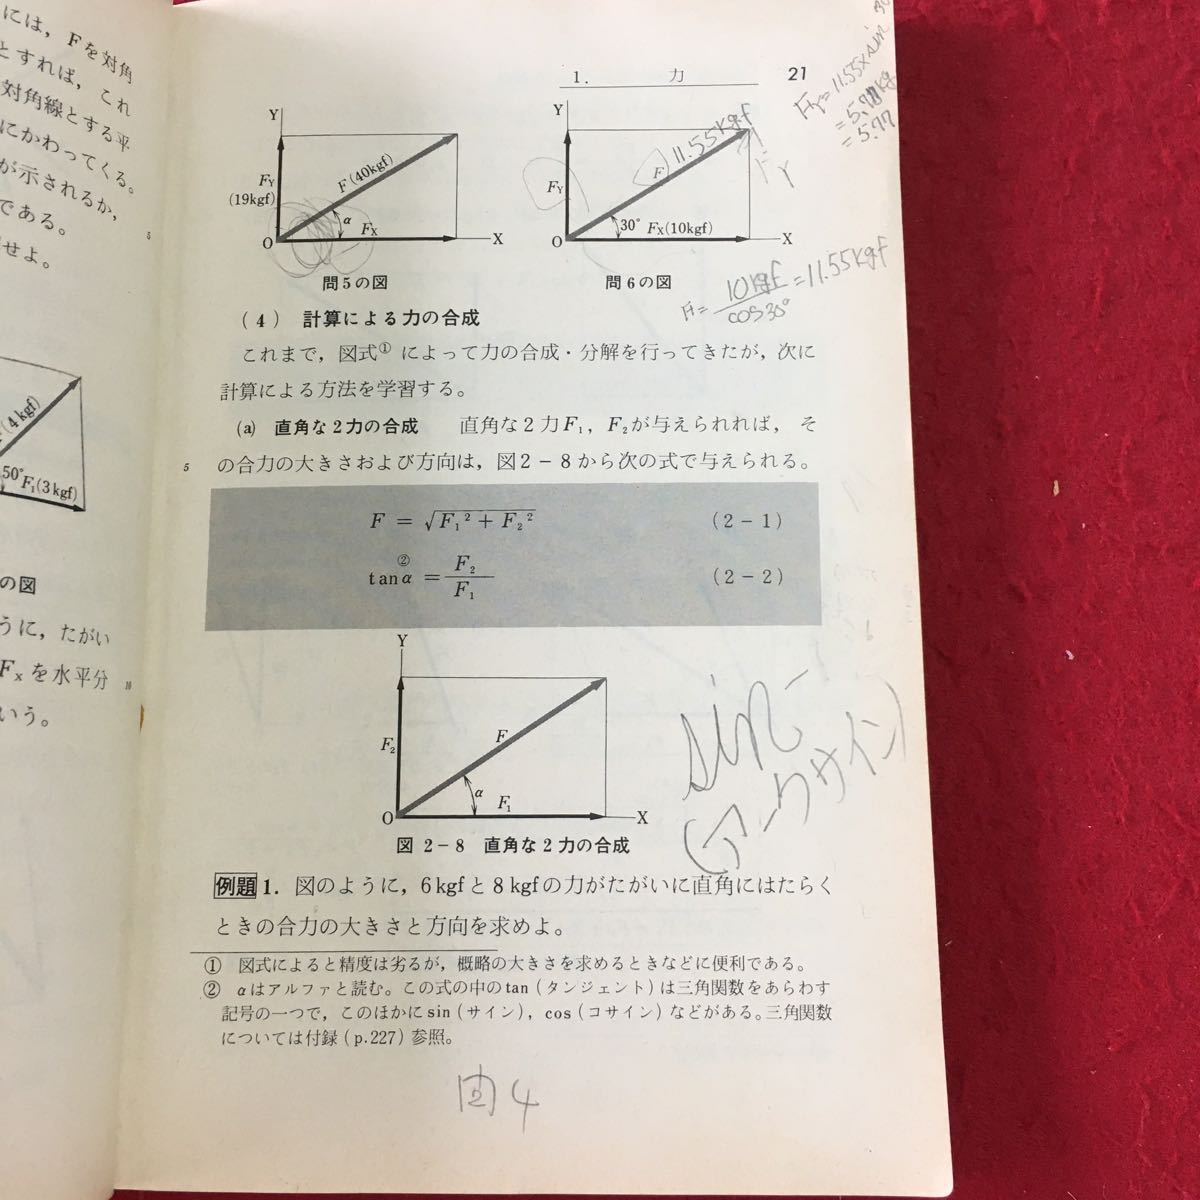 には，Fを対角
とすれば，これ
対角線とする平
にかわってくる。
が示されるか，
である。
せよ。
5
(4kgf)
50°
F₁(3kgf)
の図
うに，たがい
Fxを水平分
10
いう。
1. 力 21
Y
F_Y
(19kgf)
F(40kgf)
α
F_X
O
X
問5の図
Y
F_Y
F
11.55kgf
F_Y
30°
F_X(10kgf)
O
X
問6の図
Fy=11.55×sin 30
=5.77kgf
=5.77
F=10kgf/cos30°=11.55kgf
(4) 計算による力の合成
これまで，図式①によって力の合成・分解を行ってきたが，次に
計算による方法を学習する。
(a) 直角な2力の合成 直角な2力F₁，F₂が与えられれば，そ
5
の合力の大きさおよび方向は，図2-8から次の式で与えられる。
F = √F₁²+F₂² (2-1)
tanα② = F₂/F₁ (2-2)
Y
F₂
F
α
F₁
O
X
図 2-8 直角な2力の合成
sin⁻
(アークサイン)
例題 1. 図のように，6kgfと8kgfの力がたがいに直角にはたらく
ときの合力の大きさと方向を求めよ。
① 図式によると精度は劣るが，概略の大きさを求めるときなどに便利である。
② αはアルファと読む。この式の中のtan（タンジェント）は三角関数をあらわす
記号の一つで，このほかにsin（サイン），cos（コサイン）などがある。三角関数
については付録（p.227）参照。
4